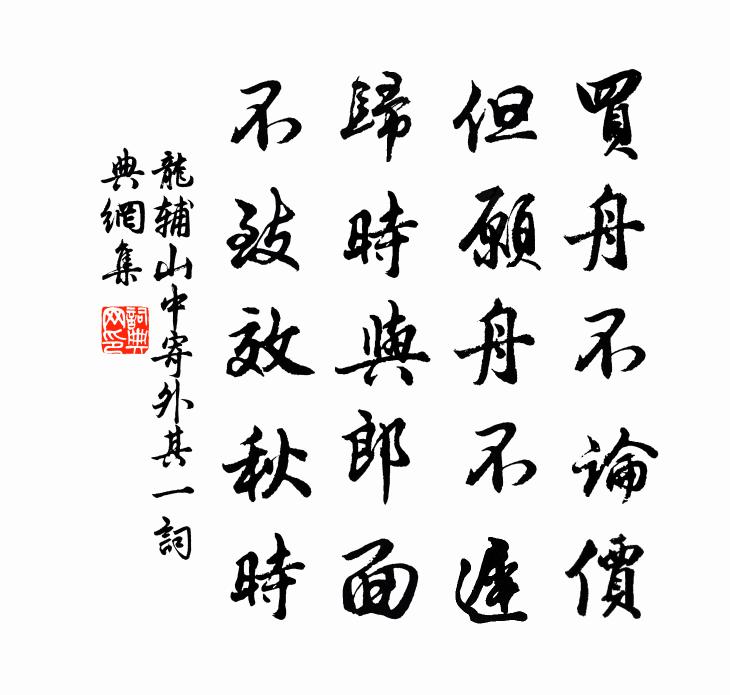 買舟不論價
但願舟不遲
歸時與郎面
不致效秋時
龍辅山中寄外其一詞
典網集
詞典
网印